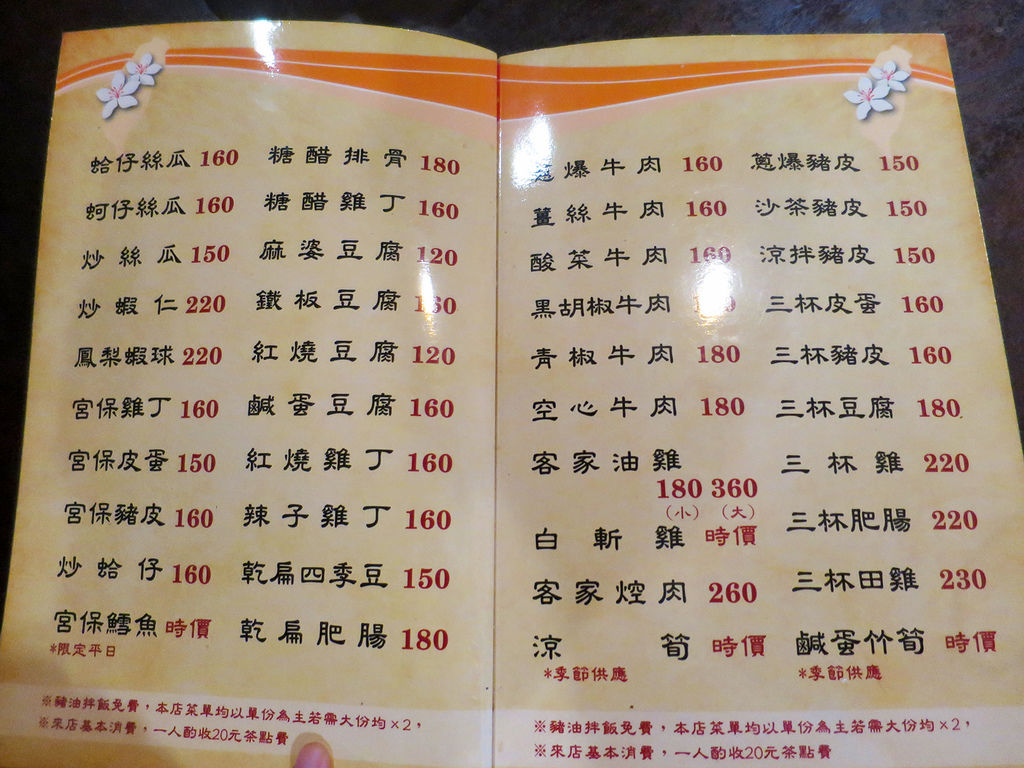 蛤仔絲瓜 160
蚵仔絲瓜 160
炒絲瓜 150
炒蝦仁 220
鳳梨蝦球 220
宮保雞丁 160
宮保皮蛋 150
宮保豬皮 160
炒蛤仔 160
宮保鱈魚 時價
*限定平日
糖醋排骨 180
糖醋雞丁 160
麻婆豆腐 120
鐵板豆腐
紅燒豆腐 120
鹹蛋豆腐 160
紅燒雞丁 160
辣子雞丁 160
乾扁四季豆 150
乾扁肥腸 180
※豬油拌飯免費,本店菜單均以單份為主若需大份均×2,
※來店基本消費,一人酌收20元茶點費
蔥爆牛肉 160
薑絲牛肉 160
酸菜牛肉 160
黑胡椒牛肉
青椒牛肉 180
空心牛肉 180
客家油雞
180 360
(小) (大)
白斬雞 時價
客家焢肉 260
涼筍 時價
*季節供應
蔥爆豬皮 150
沙茶豬皮 150
涼拌豬皮 150
三杯皮蛋 160
三杯豬皮 160
三杯豆腐 180
三杯雞 220
三杯肥腸 220
三杯田雞 230
鹹蛋竹筍 時價
*季節供應
※豬油拌飯免費,本店菜單均以單份為主若需大份均×2,
※來店基本消費,一人酌收20元茶點費